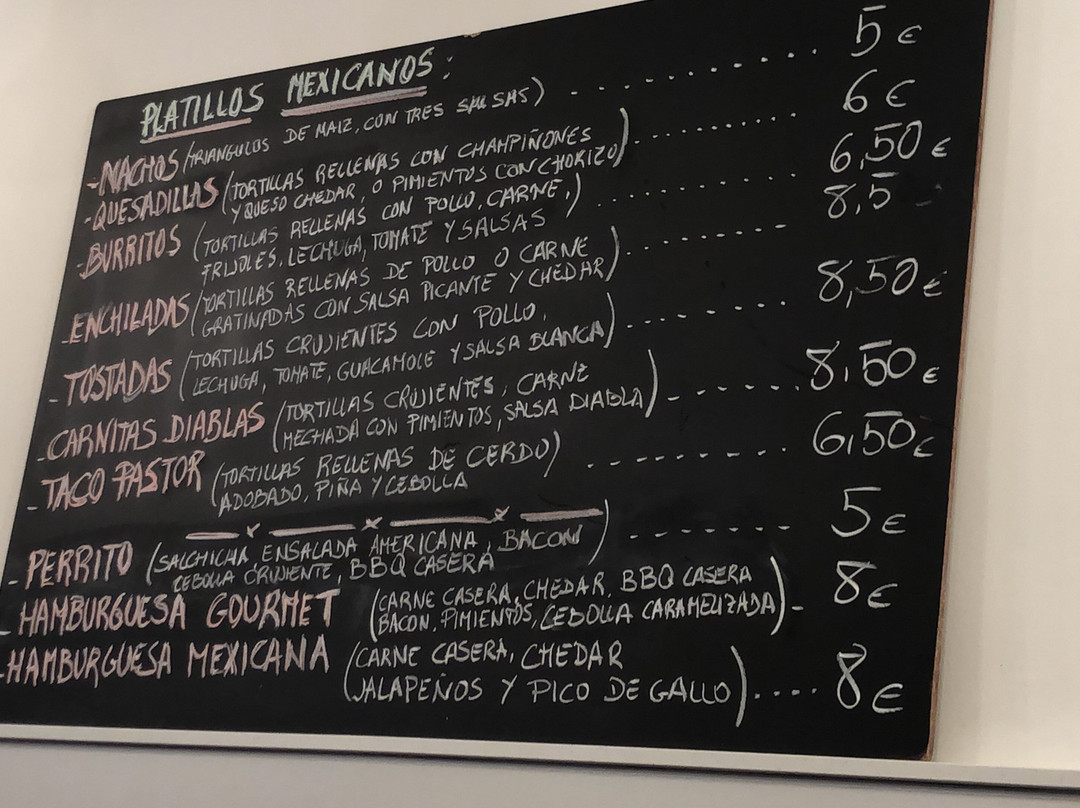 PLATILLOS MEXICANOS:
-NACHOS (TRIANGULOS DE MAIZ, CON TRES SALSAS) ........ 5€
-QUESADILLAS (TORTILLAS RELLENAS CON CHAMPIÑONES
Y QUESO CHEDAR, O PIMIENTOS CON CHORIZO) ........ 6€
-BURRITOS (TORTILLAS RELLENAS CON POLLO, CARNE,) ........ 6,50€
FRIJOLES, LECHUGA, TOMATE Y SALSAS
-ENCHILADAS (TORTILLAS RELLENAS DE POLLO O CARNE
GRATINADAS CON SALSA PICANTE Y CHEDAR) ........ 8,5
-TOSTADAS (TORTILLAS CRUJIENTES CON POLLO,
LECHUGA, TOMATE, GUACAMOLE Y SALSA BLANCA) ........ 8,50€
-CARNITAS DIABLAS (TORTILLAS CRUJIENTES, CARNE
MECHADA CON PIMIENTOS, SALSA DIABLA) ........ 8,50€
-TACO PASTOR (TORTILLAS RELLENAS DE CERDO) ........ 6,50€
ADOBADO, PIÑA Y CEBOLLA
-PERRITO (SALCHICHA, ENSALADA AMERICANA, BACON) ....... 5€
CEBOLLA CRUJIENTE, BBQ CASERA
-HAMBURGUESA GOURMET (CARNE CASERA, CHEDAR, BBQ CASERA
BACON, PIMIENTOS, CEBOLLA CARAMELIZADA) - 8€
-HAMBURGUESA MEXICANA (CARNE CASERA, CHEDAR
JALAPEÑOS Y PICO DE GALLO) .... 8€